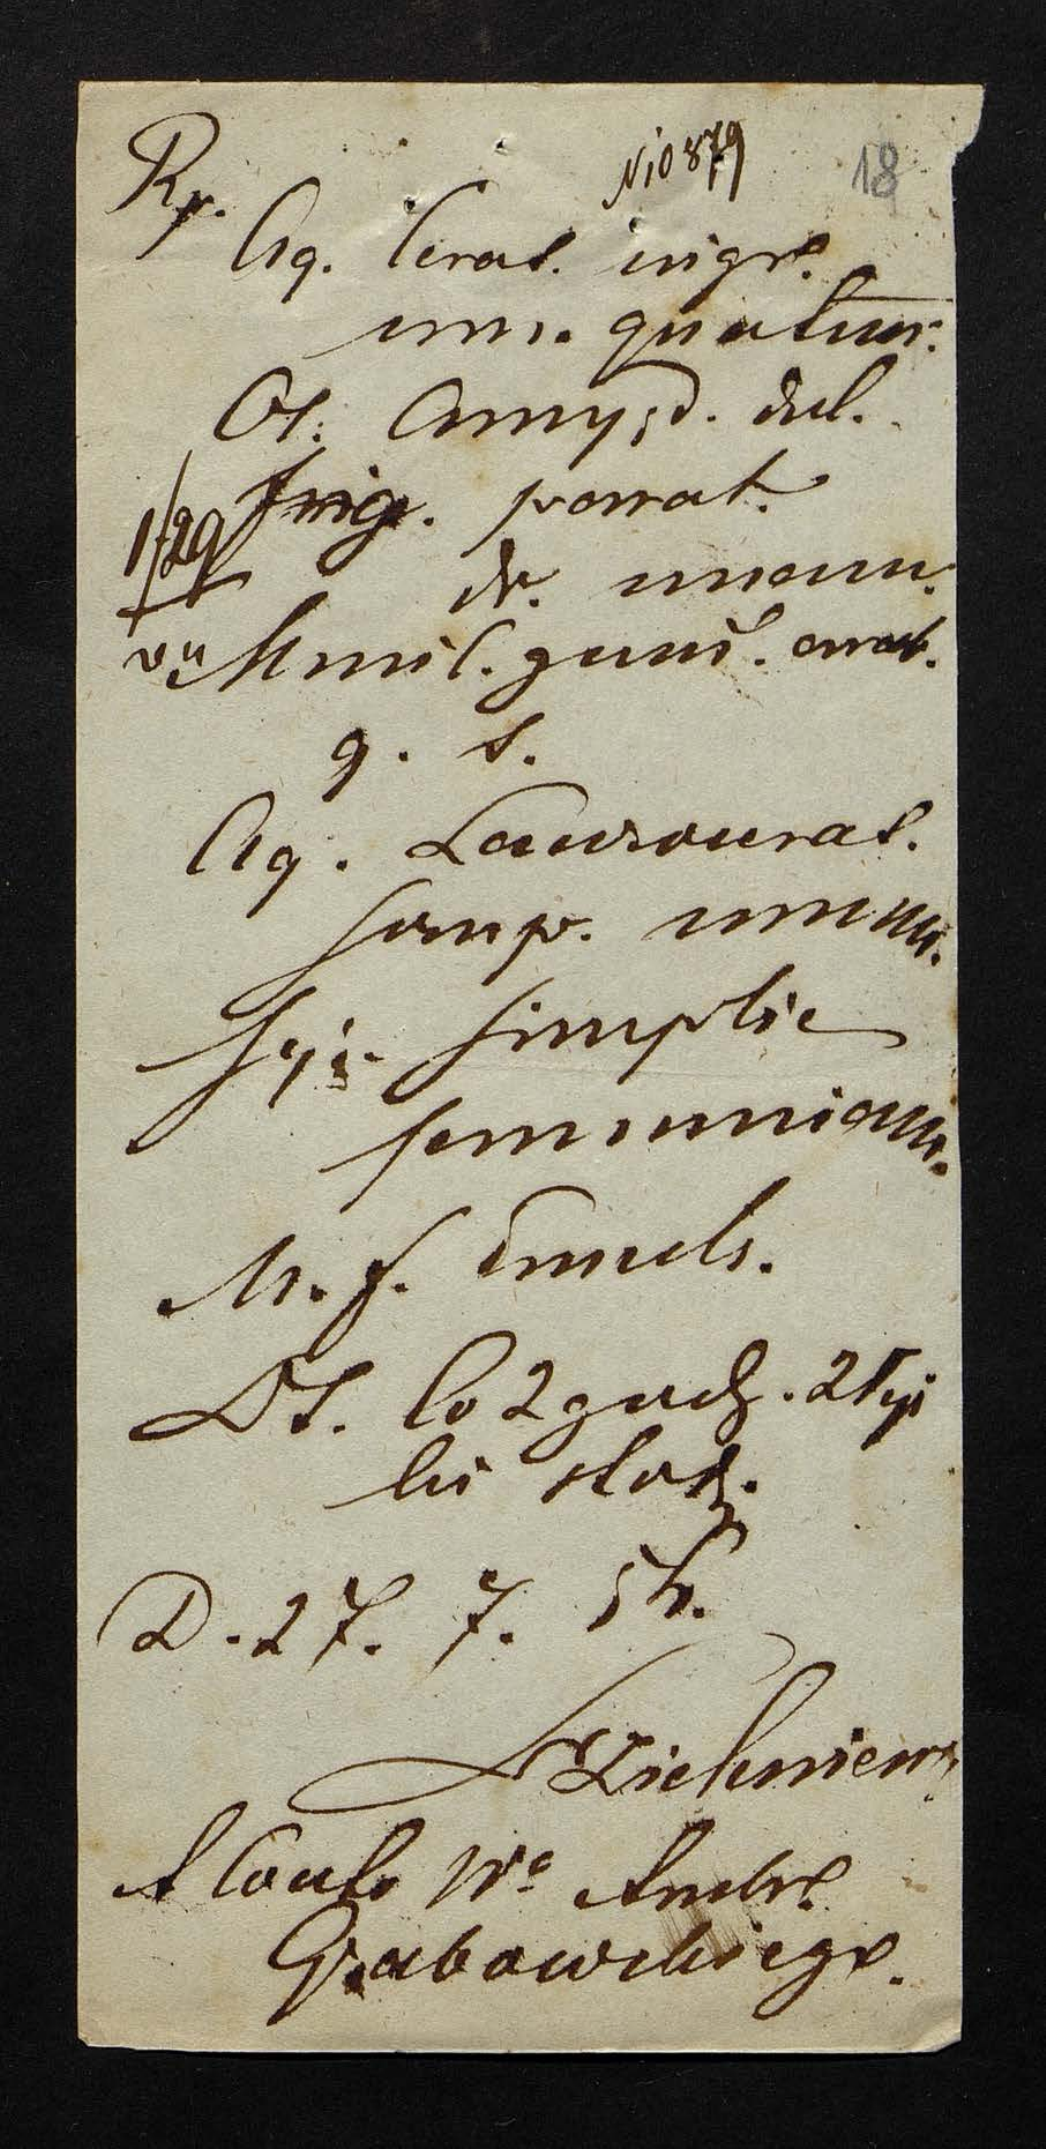 Rp. N 10879 18
Aq. Ceras. nigr.
unc. quatuor.
Ol. Amygd. dul.
frig. parat.
1/29
dr. unam.
Mucil. gumi. arab.
q. s.
Aq. Lauroceras.
scrup. unum.
Syr. simplic
semiunciam.
M. f. emuls.
DS. Co 2 godz. 2 łyż
ki stoł.
D. 27. 7. 54.
A Conto Wo Ambr.
Grabowskiego.